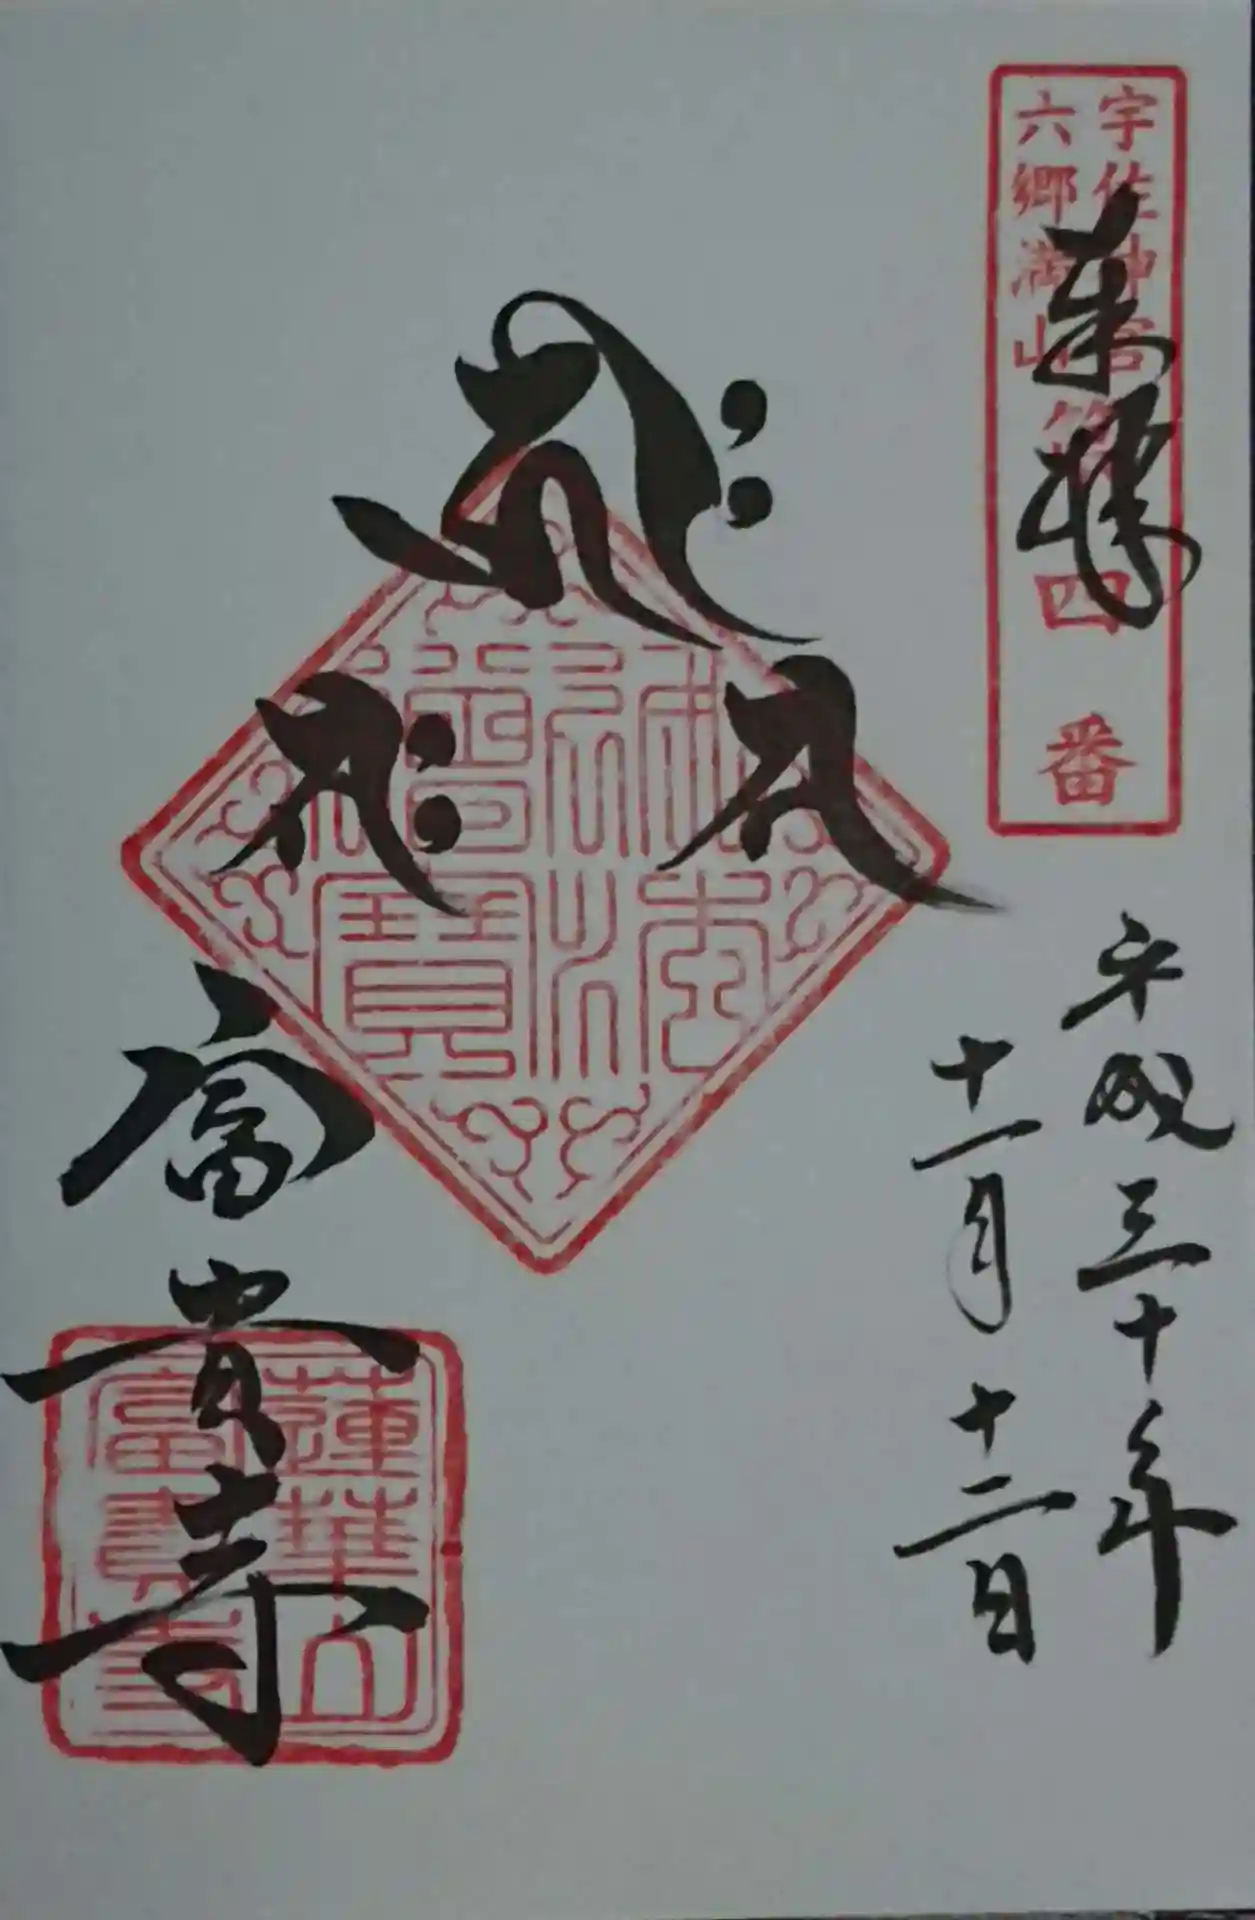 宇佐神宮
六郷満山
第四番
奉拝
平成三十年
十一月十二日
𑖮𑖿𑖨𑖱𑖾
𑖭
𑖭𑖾
佛法
僧寶
富貴寺
蓮華山
富貴寺